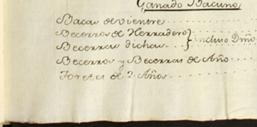 Ganado Bacuno
Bacas de vientre
Becerros de Herradero
Becerras dichas } incluso Dmô
Becerros y Becerras de Año
Toretes de 2 Años